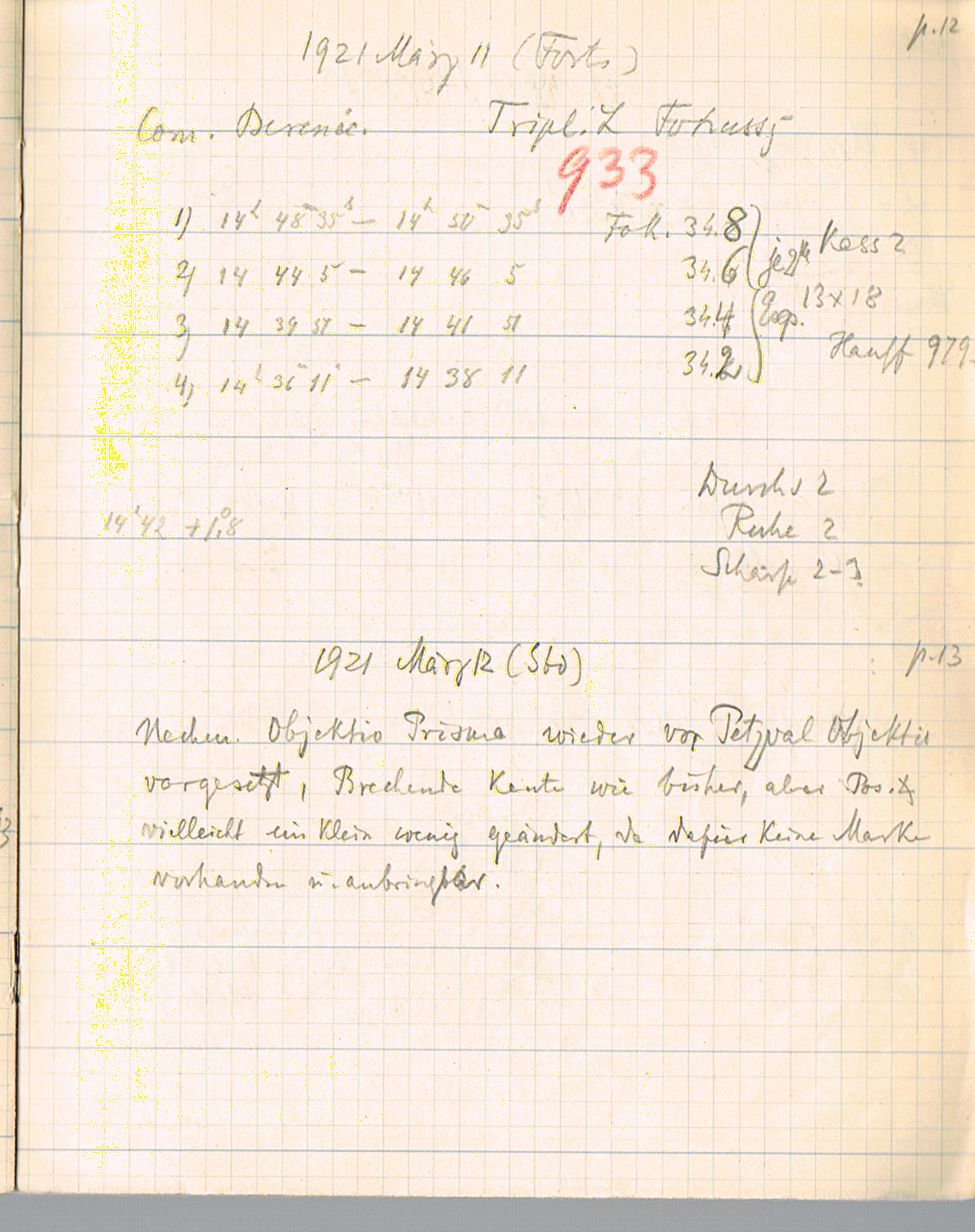 p.12
1921 März 11 (Forts)
Com. Berenic. Tripl. Z Fokussg
933
1) 14h 48m 35s — 14h 50m 35s Fok. 34.8
2) 14 44 5 — 14 46 5 34.6 je 2m Kass 2
3) 14 39 51 — 14 41 51 34.4 Exp. 13x18
4) 14h 36m 11s — 14 38 11 34.2 Hauff 979
Durchs 2
14h42 +1°,8 Ruhe 2
Schärfe 2-3
1921 März 12 (Sbd) p.13
Nachm. Objektiv Prisma wieder vor Petzval Objektiv
vorgesetzt, Brechende Kante wie bisher, aber Pos. ∡
vielleicht ein klein wenig geändert, da dafür keine Marke
vorhanden u. anbringbar.